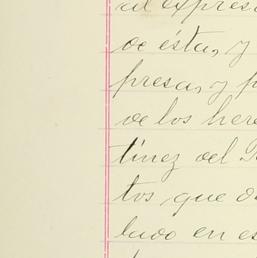 al expres
de ésta, y
presa, y p
de los here
tínez del
tos que d
lado en es